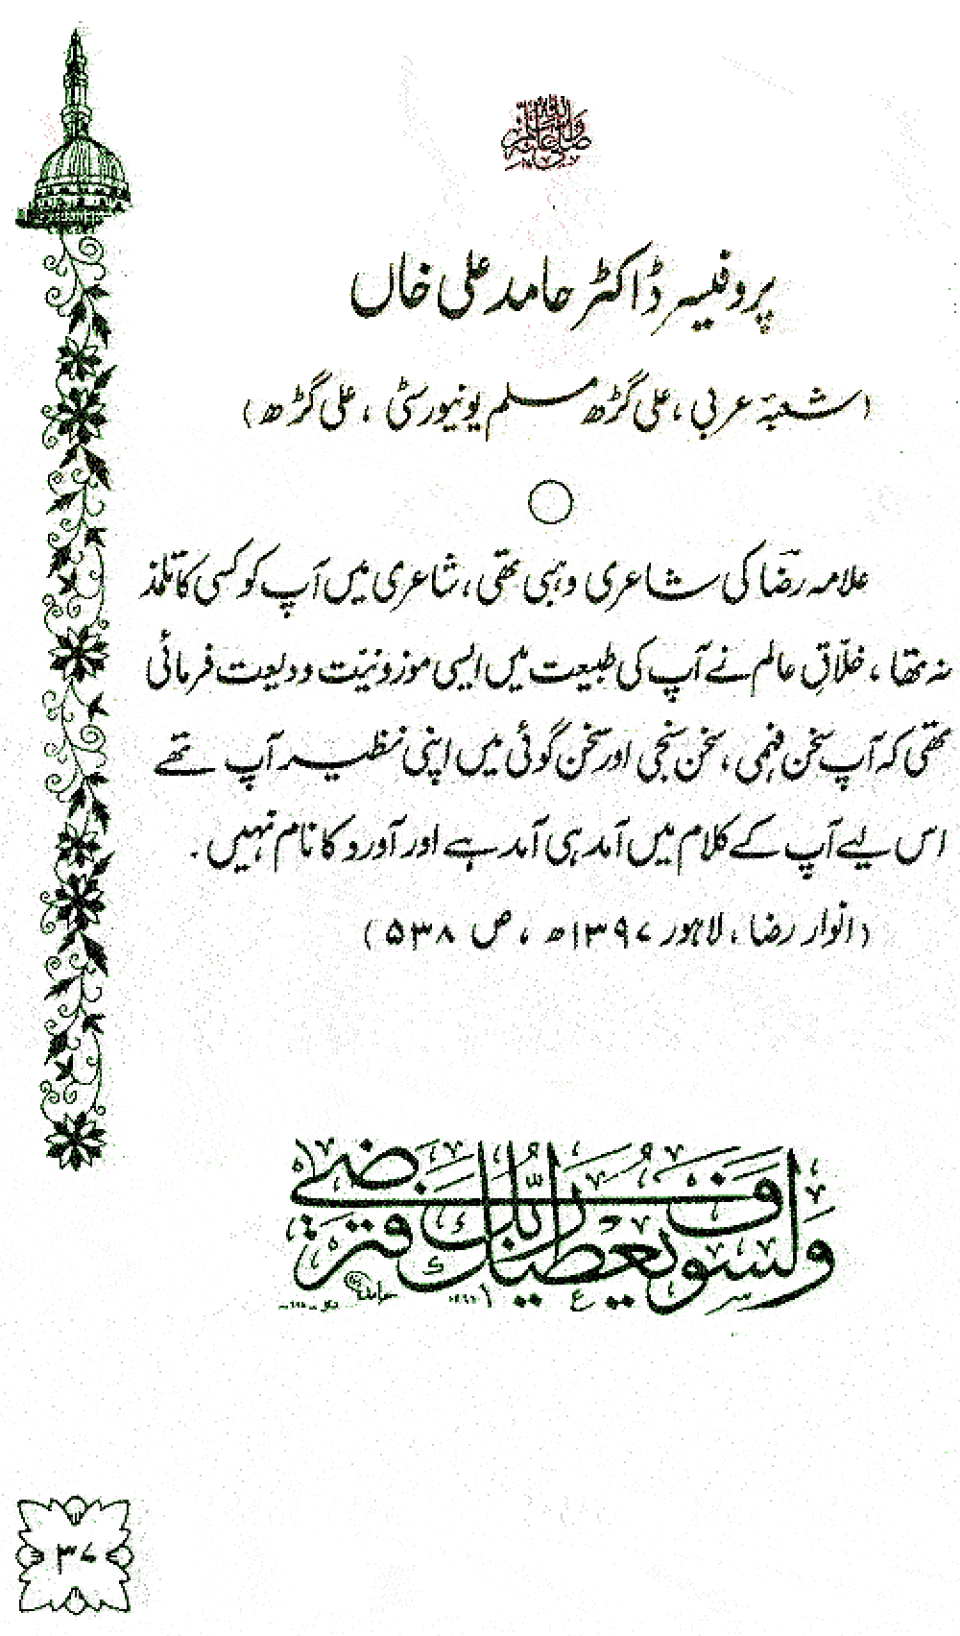 صلی اللہ علیہ وسلم
پروفیسر ڈاکٹر حامد علی خاں
(شعبۂ عربی، علی گڑھ مسلم یونیورسٹی، علی گڑھ)
علامہ رضاؔ کی شاعری وہبی تھی، شاعری میں آپ کو کسی کا تلمذ
نہ تھا، خلّاقِ عالم نے آپ کی طبیعت میں ایسی موزونیّت ودیعت فرمائی
تھی کہ آپ سخن فہمی، سخن سنجی اور سخن گوئی میں اپنی نظیر آپ تھے
اس لیے آپ کے کلام میں آمد ہی آمد ہے اور آورد کا نام نہیں۔
(انوار رضا، لاہور ۱۳۹۷ھ، ص ۵۳۸)
ولسوف يعطيك ربك فترضى
۳۷